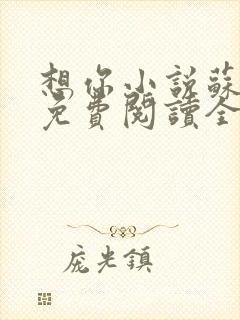 想你小说蘇
免費閱讀全
庞光鎮